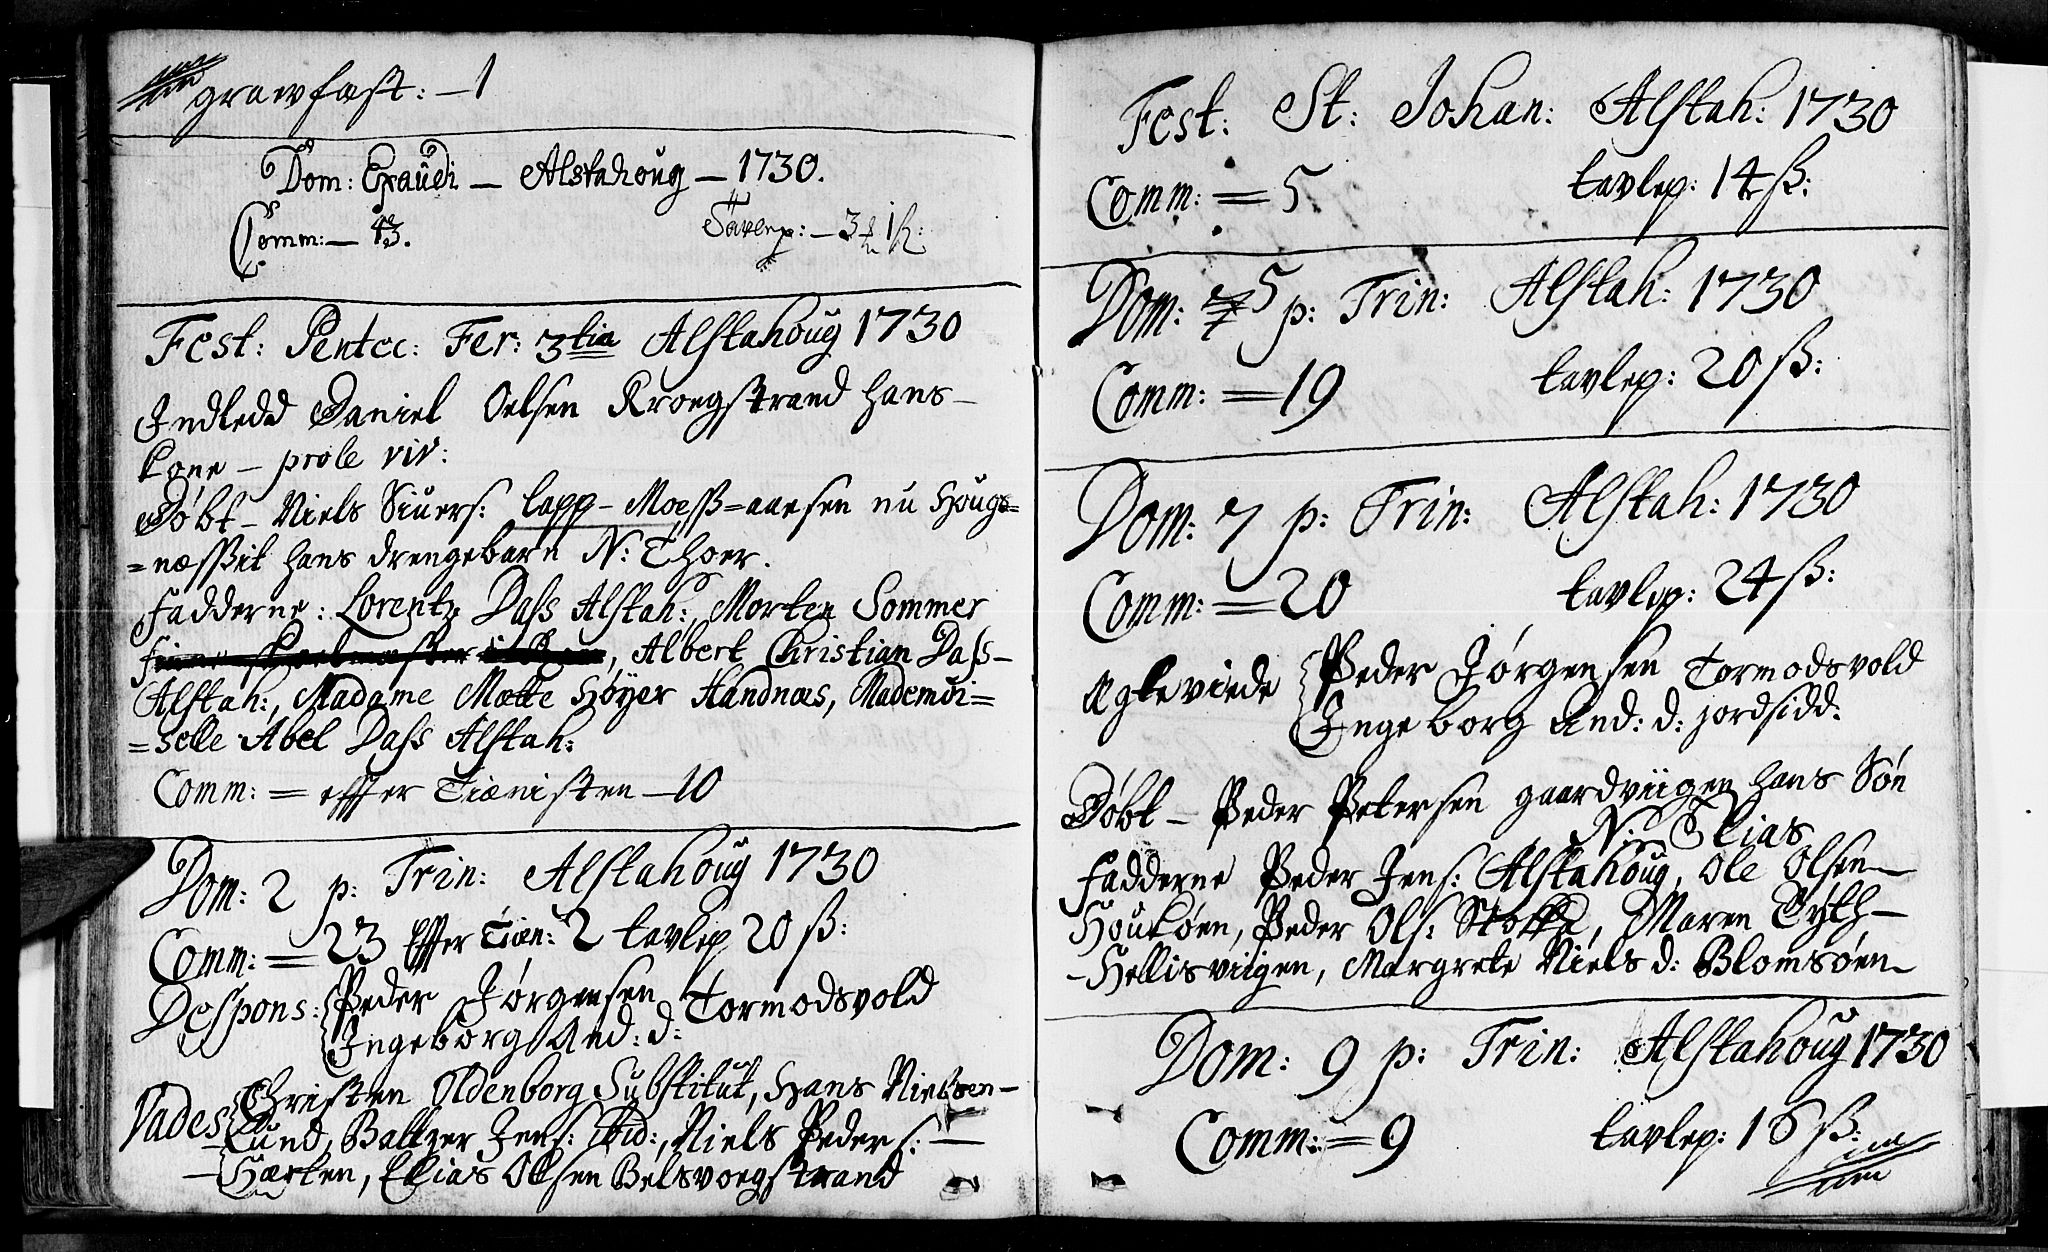 grawfæst: – 1
Dom: Exaudi – Alstahoug – 1730.
Comm: – 43. Tavlep: – 3 1 ß:
Fest: Pentec: Fer: 3tia Alstahoug 1730
Indledd Daniel Oelsen Kroegstrand hans –
kone – prole viv:
Døbt – Niels Siuers: lapp – Moesß=aaesen nu Houg=
=næssßit hans drengebarn N: Thoer.
Fadderne: Lorentz Dass Alstah: Morten Sommer
, Albert Christian Dass –
Alstah:, Madame Mætte Høyer Handnæs, Mademoi=
=selle Abel Dass Alstah:
Comm: = effter Tiænisten – 10
Dom: 2 p: Trin: Alstahoug 1730
Comm: = 23 Effter Tiæn: 2 tavlep 20 ß:
Despons: Peder Jørgensen Tormodsvold
Ingeborg And: d:
Vades Christen Oldenborg Substitut, Hans Nielsen –
Lund, Baltzer Jens: ibid:, Niels Peders: –
– Hærten, Elias Olsen Belsvoegstrand
Fest: St: Johan: Alstah: 1730
Comm: = 5 tavlep: 14 ß:
Dom: 5 p: Trin: Alstah: 1730
Comm: = 19 tavlep: 20 ß:
Dom: 7 p: Trin: Alstah: 1730
Comm: = 20 tavlep: 24 ß:
Ægteviede Peder Jørgensen Tormodsvold
Ingeborg And: d: jordsidd:
Døbt – Peder Petersen gaardviigen hans Søn
N: Elias
Fadderne Peder Jens: Alstahoug, Ole Olsen –
Houkøen, Peder Ols: Stokka, Maren Tyth –
– Hellisviigen, Margrete Niels d: Blomsøen –
Dom: 9 p: Trin: Alstahoug 1730
Comm: = 9 tavlep: 16 ß: